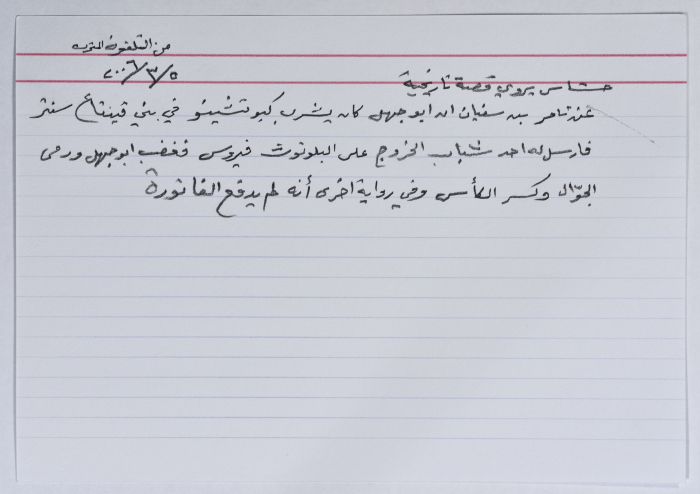 من التلفون المنزل
٢٠٠٦/٣/٥
حشاش يروي قصة تاريخية
عن تامر بن سفيان ان ابو جهل كان يشرب كبوتشينو في بني قينقاع سنتر
فارسل له احد شباب الخزرج على البلوتوث فيروس فغضب ابو جهل ورمى
الجوّال وكسر الكأس وفي رواية اخرى أنه لم يدفع الفاتورة